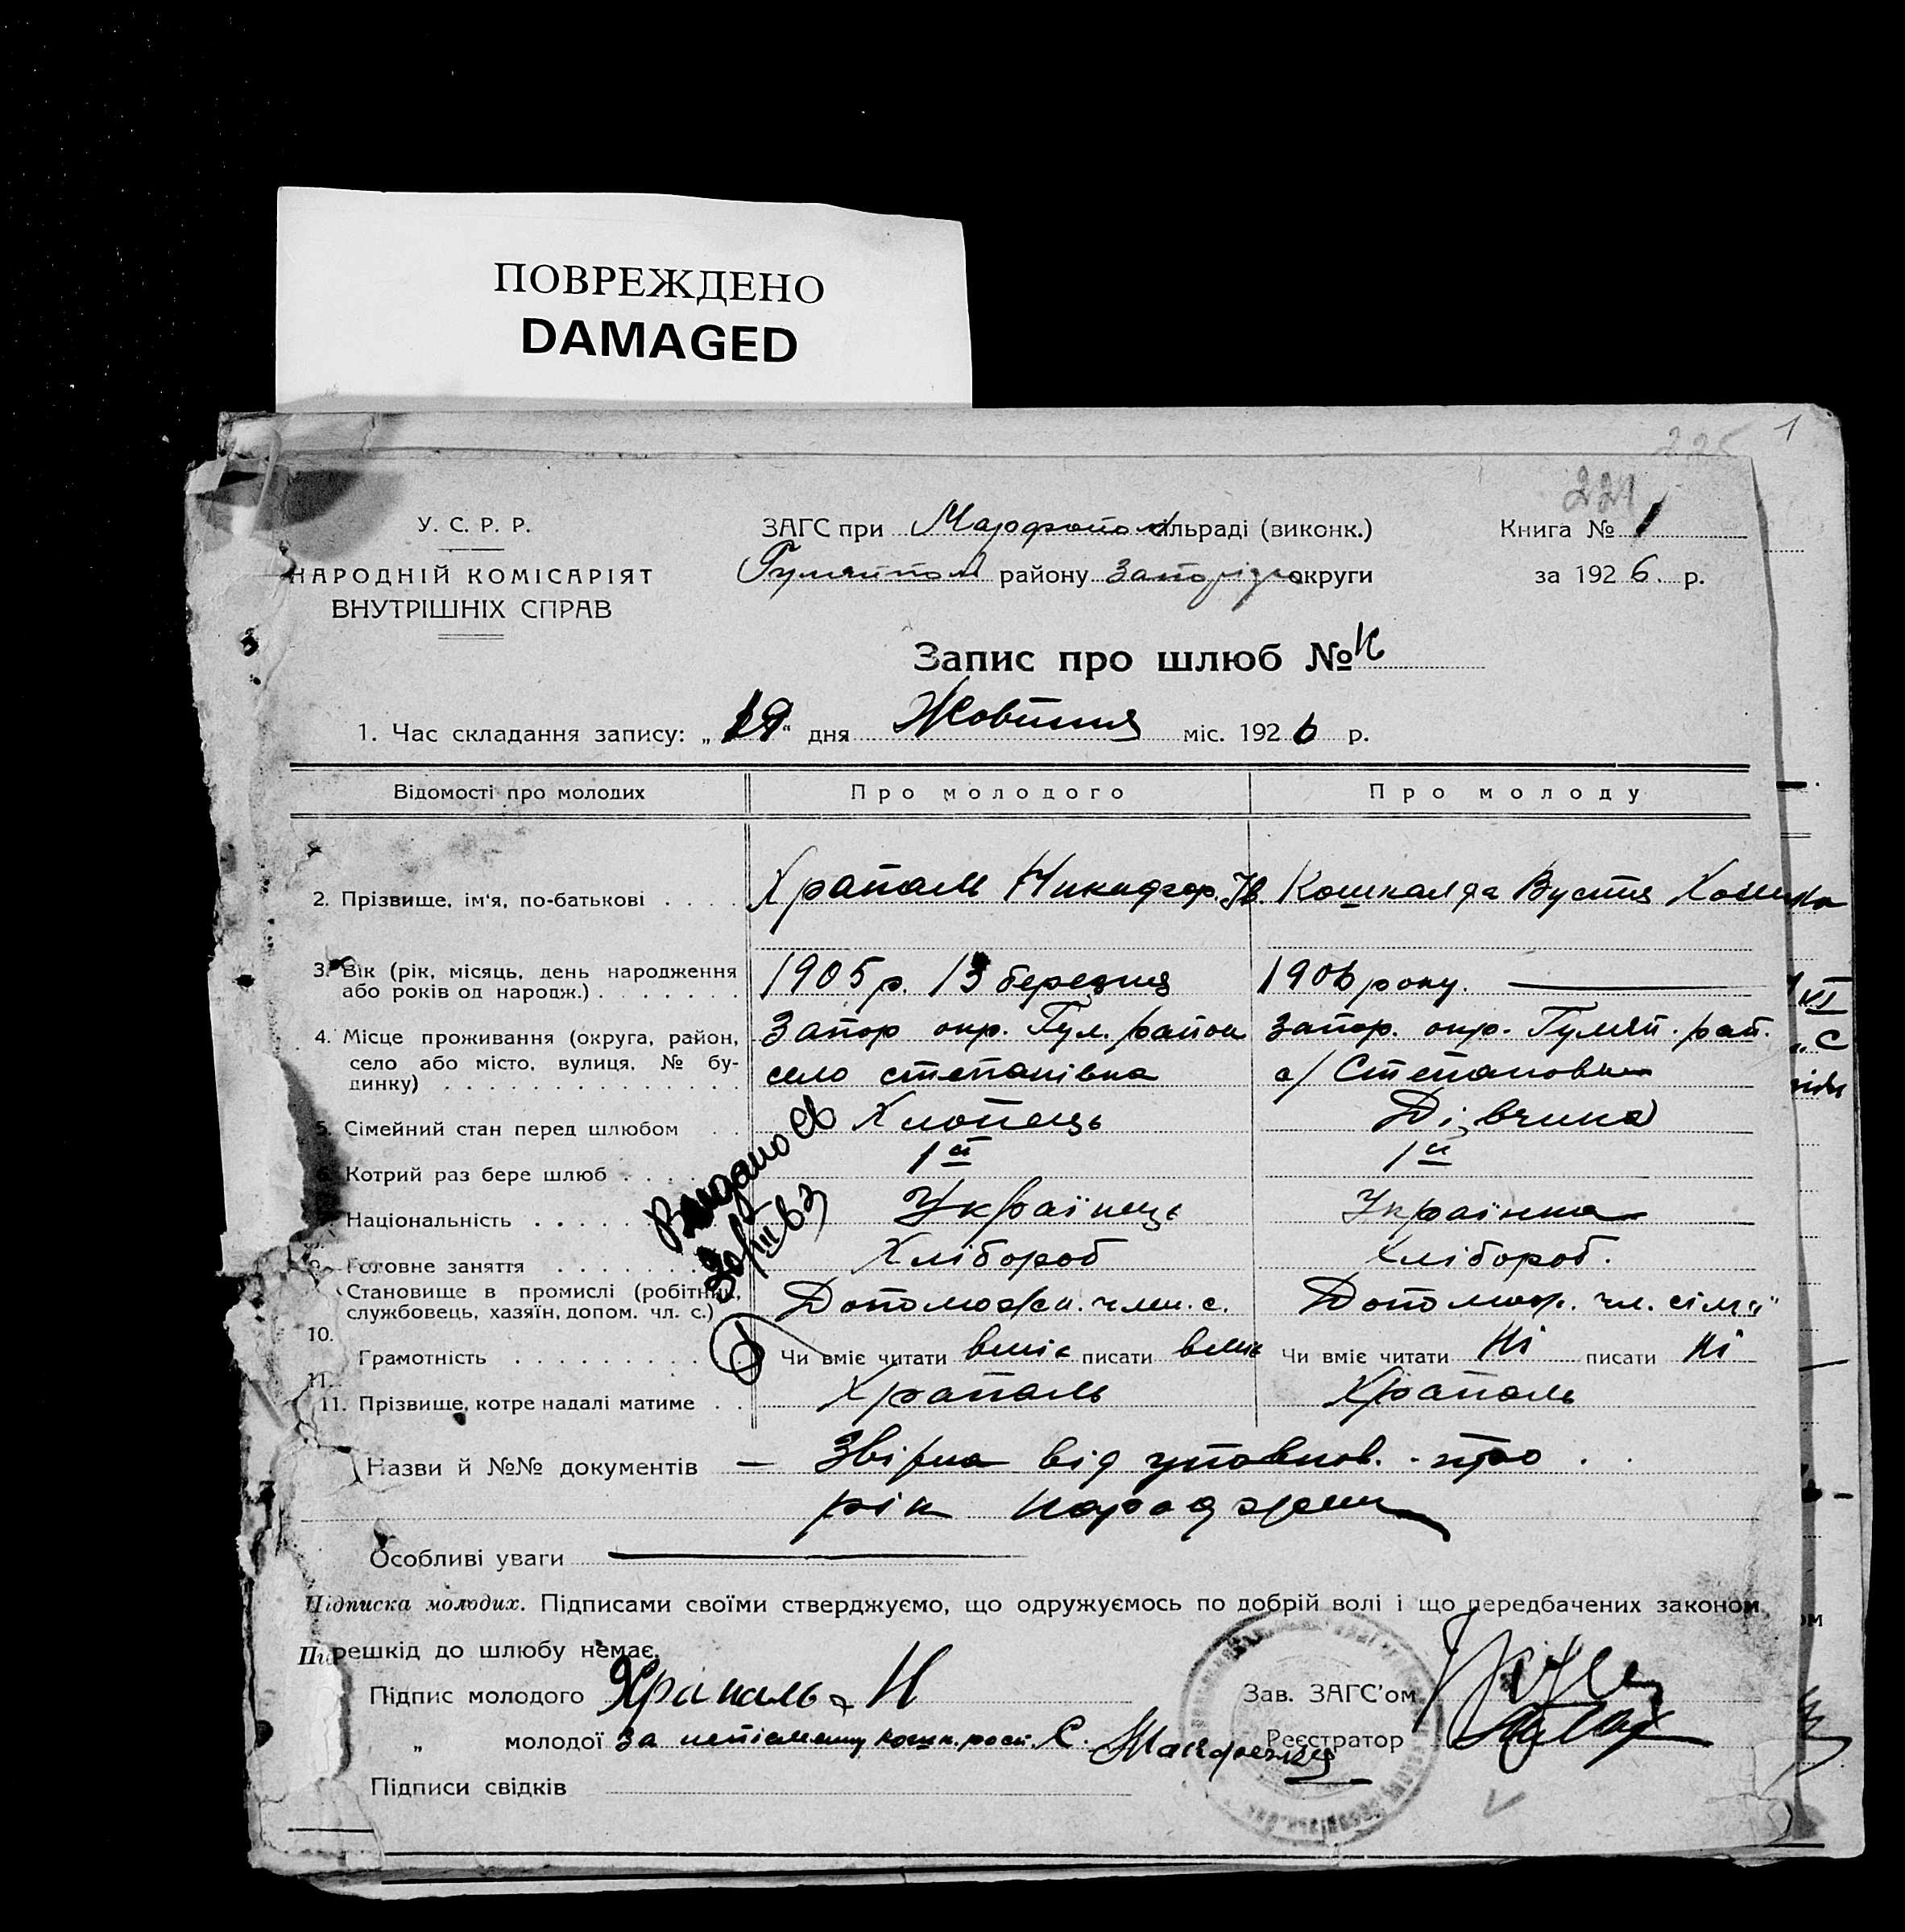 ПОВРЕЖДЕНО
DAMAGED
1
225
221
У. С. Р. Р.
НАРОДНІЙ КОМІСАРІЯТ
ВНУТРІШНІХ СПРАВ
ЗАГС при Марфопол ільраді (виконк.)
Гуляйпол району Запоріз округи
Книга № 1
за 1926. р.
Запис про шлюб №
1. Час складання запису: „19“ дня Жовтня міс. 1926 р.
Відомості про молодих
Про молодого
Про молоду
2. Прізвище, ім'я, по-батькові . . . . Храпаль Никифор. Ів. Кошкалда Вустя Хомівна
3. Вік (рік, місяць, день народження або років од народж.) . . . . . . . 1905 р. 13 березня 1906 року. —
4. Місце проживання (округа, район, Запор окр. Гул. район Запор. окр. Гуляй. рай.
село або місто, вулиця, № будинку) . . . село степанівка с/ Степановка
5. Сімейний стан перед шлюбом . . Хлопець Дівчина
6. Котрий раз бере шлюб . . . . 1й 1й
Національність . . . . . Українець Українка
Головне заняття . . . . . . . Хлібороб Хлібороб.
Становище в промислі (робітник, службовець, хазяїн, допом. чл. с.) Допоможн. член. с. Допомож. чл. сімї
10.
Грамотність . . . . . . . . . Чи вміє читати вміє писати вміє Чи вміє читати Ні писати Ні
11.
11. Прізвище, котре надалі матиме . . Храпаль Храпаль
Видано св
30/III 63
Назви й №№ документів — Звірка від уповнов. про
рік народження
Особливі уваги —
Підписка молодих. Підписами своїми стверджуємо, що одружуємось по добрій волі і що передбачених законом
решкід до шлюбу немає.
Підпис молодого Храпаль Н
Зав. ЗАГС'ом
„ молодої За неписьменну розп. С.
Реєстратор
Підписи свідків